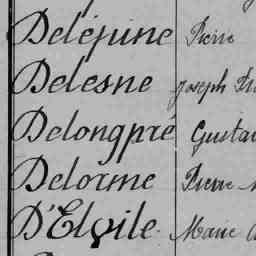 Delépine Pierre
Delesne Joseph
Delongpré Gusta
Delorme Pierre
D'Elvile Marie